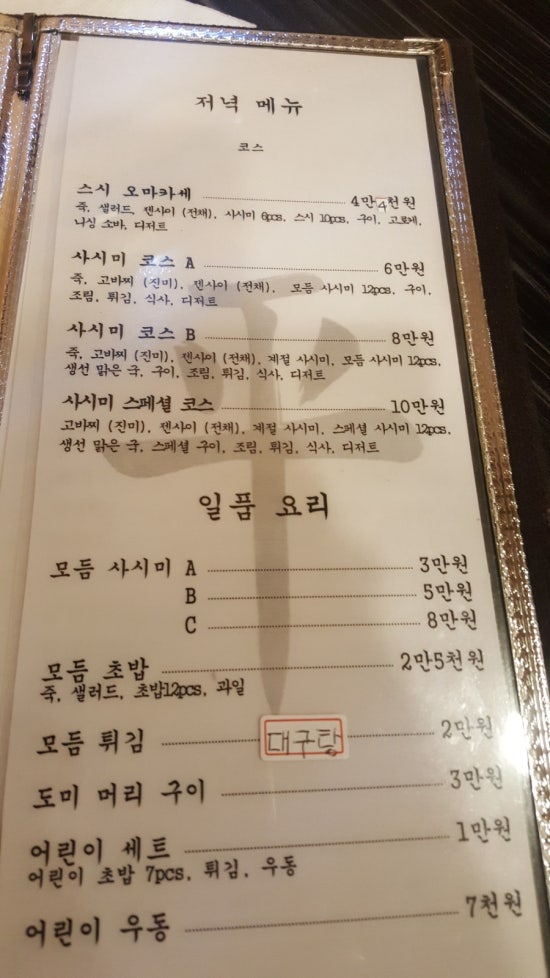 저녁 메뉴
코스
스시 오마카세 4만4천원
죽, 샐러드, 젠사이 (전채), 사시미 6pcs, 스시 10pcs, 구이, 고로케,
니싱 소바, 디저트
사시미 코스 A 6만원
죽, 고바찌 (진미), 젠사이 (전채), 모듬 사시미 12pcs, 구이,
조림, 튀김, 식사, 디저트
사시미 코스 B 8만원
죽, 고바찌 (진미), 젠사이 (전채), 계절 사시미, 모듬 사시미 12pcs,
생선 맑은 국, 구이, 조림, 튀김, 식사, 디저트
사시미 스페셜 코스 10만원
고바찌 (진미), 젠사이 (전채), 계절 사시미, 스페셜 사시미 12pcs,
생선 맑은 국, 스페셜 구이, 조림, 튀김, 식사, 디저트
平
일품 요리
모듬 사시미 A 3만원
B 5만원
C 8만원
모듬 초밥 2만5천원
죽, 샐러드, 초밥12pcs, 과일
모듬 튀김 대구탕 2만원
도미 머리 구이 3만원
어린이 세트 1만원
어린이 초밥 7pcs, 튀김, 우동
어린이 우동 7천원